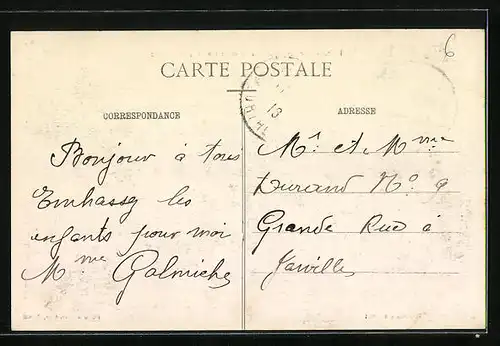 6
CARTE POSTALE
13
CORRESPONDANCE
ADRESSE
Bonjour à tous
Embassez les
enfants pour moi
Mme Galmiche
Mr. et Mme
Durand No 9
Grande Rue à
Jarville